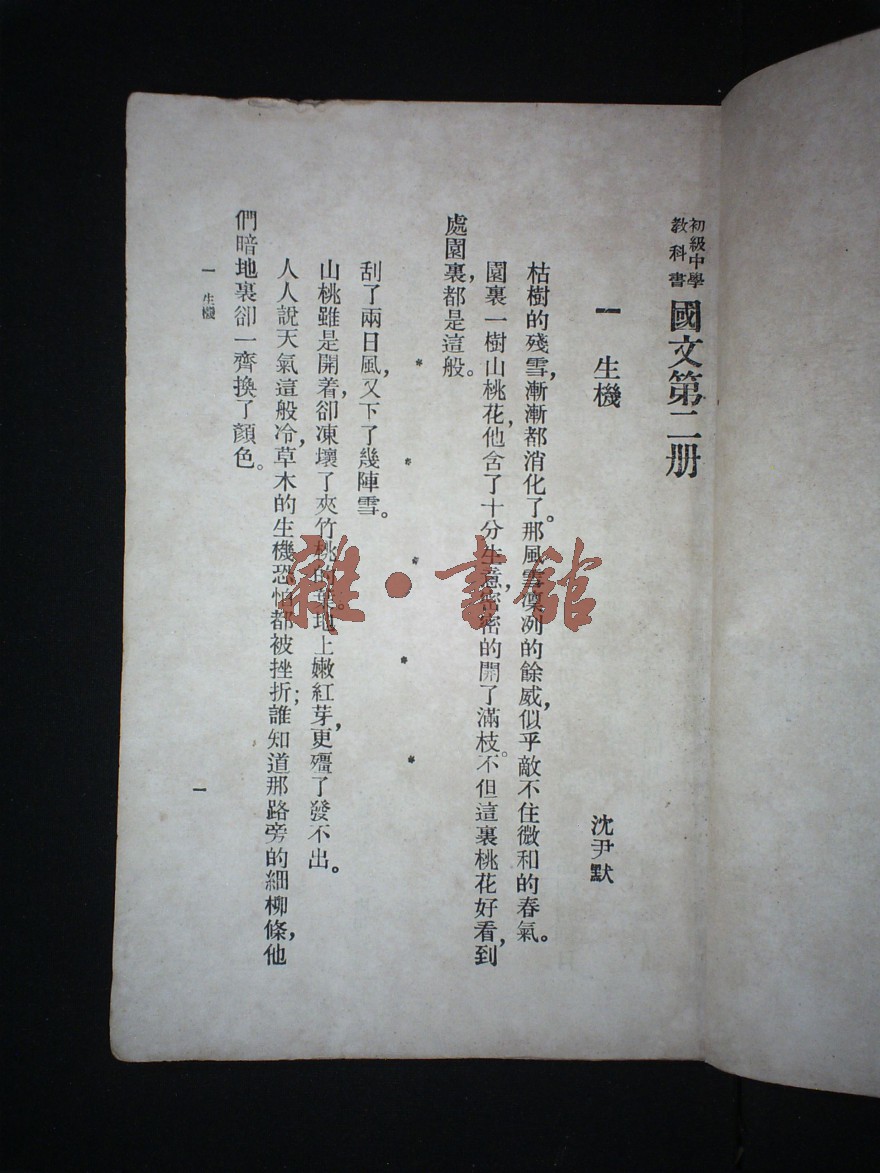 初級中學
教科書
國文第二册
一 生機
沈尹默
枯樹的殘雪，漸漸都消化了。那風雪凜冽的餘威，似乎敵不住微和的春氣。
園裏一樹山桃花，他含了十分生意，密密的開了滿枝。不但這裏桃花好看，到
處園裏，都是這般。
* * * * *
刮了兩日風，又下了幾陣雪。
山桃雖是開着，卻凍壞了夾竹桃的葉。地上嫩紅芽，更殭了發不出。
人人說天氣這般冷，草木的生機恐怕都被挫折；誰知道那路旁的細柳條，他
們暗地裏卻一齊換了顏色。
一 生機
一
雜·書館